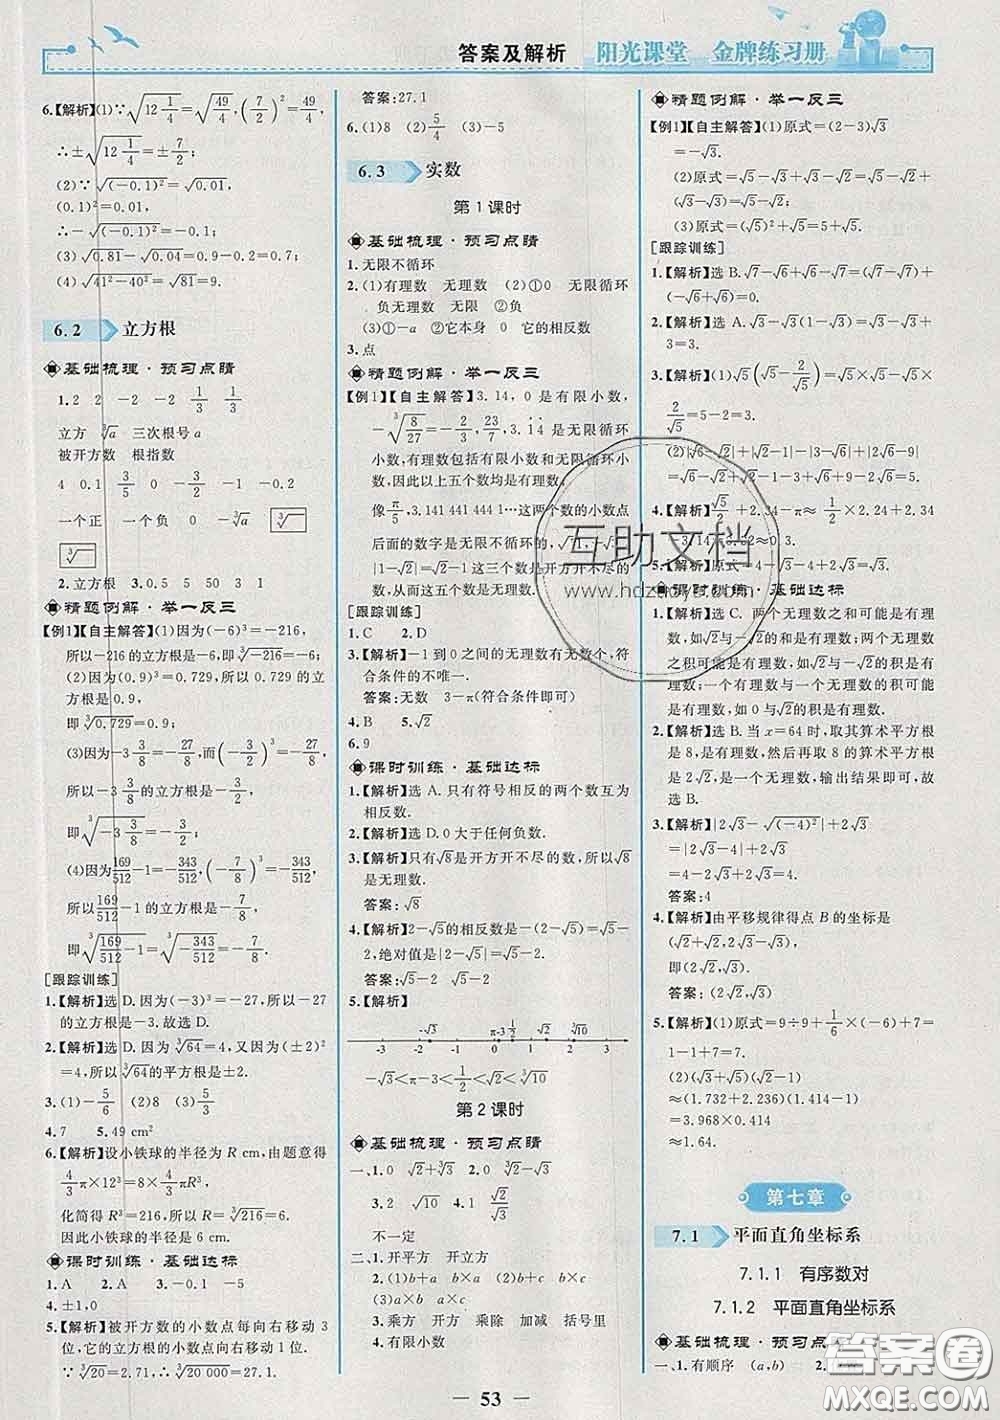 答案及解析 阳光课堂 金牌练习册
6.【解析】(1)∵√(12 1/4)=√(49/4),(7/2)²=49/4,
∴±√(12 1/4)=±7/2;
(2)∵√((-0.1)²)=√0.01,
(0.1)²=0.01,
∴-√((-0.1)²)=-0.1;
(3)√0.81-√0.04=0.9-0.2=0.7;
(4)√(41²-40²)=√81=9.
6.2 立方根
基础梳理·预习点睛
1.2 2 -2 -2 1/3 1/3
立方 ³√a 三次根号a
被开方数 根指数
4 0.1 3/5 0 -3 -1 -0.2
一个正 一个负 0 -³√a ³√
³√
2.立方根 3.0.5 5 50 3 1
精题例解·举一反三
【例1】【自主解答】(1)因为(-6)³=-216,
所以-216的立方根是-6,即³√-216=-6;
(2)因为(0.9)³=0.729,所以0.729的立方根是0.9,
即³√0.729=0.9;
(3)因为-3 3/8=-27/8,而(-3/2)³=-27/8,
所以-3 3/8的立方根是-3/2,
即³√(-3 3/8)=-3/2;
(4)因为169/512-1=-343/512,(-7/8)³=-343/512,
所以169/512-1的立方根是-7/8,
即³√(169/512-1)=³√(-343/512)=-7/8.
[跟踪训练]
1.【解析】选D.因为(-3)³=-27,所以-27
的立方根是-3.故选D.
2.【解析】选D.因为³√64=4,又因为(±2)²
=4,所以³√64的平方根是±2.
3.(1)-5/6 (2)8 (3)-4
4.7 5.49 cm²
6.【解析】设小铁球的半径为R cm,由题意得
4/3π×12³=8×4/3πR³,
化简得R³=216,所以R=³√216=6.
因此小铁球的半径是6 cm.
课时训练·基础达标
1.A 2.A 3.-0.1 -5
4.±1,0
5.【解析】被开方数的小数点每向右移动3
位,它的立方根的小数点向右移动1位.
∵³√20=2.71,∴³√20 000=27.1.
答案:27.1
6.(1)8 (2)5/4 (3)-5
6.3 实数
第1课时
基础梳理·预习点睛
1.无限不循环
2.(1)有理数 无理数 (2)①0 无限循环
负无理数 无限 ②负
(3)①-a ②它本身 0 它的相反数
3.点
精题例解·举一反三
【例1】【自主解答】3.14,0是有限小数,
-³√(8/27)=-2/3,23/7,3.1̇4̇是无限循环
小数,有理数包括有限小数和无限循环小
数,因此以上五个数均是有理数.
像π/5,3.141 441 444 1…这两个数的小数点
后面的数字是无限不循环的,√11,-√5,
|1-√5|=√5-1这三个数是开方开不尽的
数,从而这五个数是无理数.
[跟踪训练]
1.C 2.D
3.【解析】-1到0之间的无理数有无数个,符
合条件的不唯一.
答案:无数 3-π(符合条件即可)
4.B 5.√2
6.9
课时训练·基础达标
1.【解析】选A.只有符号相反的两个数互为
相反数.
2.【解析】选D.0大于任何负数.
3.【解析】只有√8是开方开不尽的数,所以√8
是无理数.
答案:√8
4.【解析】2-√5的相反数是-(2-√5)=√5-
2,绝对值是|2-√5|=√5-2.
答案:√5-2 √5-2
5.【解析】
-√3 π-3 1/2 √2 ³√10
-3 -2 -1 0 1 2 3
-√3<π-3<1/2<√2<³√10
第2课时
基础梳理·预习点睛
一、1.0 √2+³√3 2.√2-√3
3.2 √10 4.1 √2/√3
不一定
二、1.开平方 开立方
2.(1)b+a b×a (2)b+c b×c
(3)a×b a×c
3.乘方 开方 乘除 加减 括号
4.有限小数
精题例解·举一反三
【例1】【自主解答】(1)原式=(2-3)√3
=-√3.
(2)原式=√5-√3+√3+√5=√5+√5+
(√3-√3)=2√5.
(3)原式=(√5)²+√5×1/√5... 
[跟踪训练]
1.【解析】选B.√7-√5+√5-√7=√7-√7+
√5-√5=0.
2.【解析】选A.√3-(√3-3)=√3-√3+3
=3.
3.【解析】(1)√5(√5-2/√5)=√5×√5-√5×
2/√5=5-2=3.
(2)|√6-√2|+|√2-1|-|3-√6|=√6-
√2+√2-1-3+√6=2√6-4.
4.【解析】√5/2+2.34-π≈1/2×2.24+2.34
-3.14+0.02≈0.3.
课时训练·基础达标
1.【解析】选C.两个无理数之和可能是有理
数,如√2与-√2的和是有理数;两个无理数
之积可能是有理数,如√2与-√2的积是有理
数;一个有理数与一个无理数的积可能
是有理数,如0与√2的积是有理数.
2.【解析】选B.当x=64时,取其算术平方根
是8,是有理数,然后再取8的算术平方根
是2√2,2√2是无理数,输出结果即可,故
选B.
3.【解析】|2√3-√((-4)²)|+2√3
=|2√3-4|+2√3
=4-2√3+2√3=4.
答案:4
4.【解析】由平移规律得点B的坐标是
(√2+√2,√3-√2+√2),
即(2√2,√3).
答案:(2√2,√3)
5.【解析】(1)原式=9÷9+1/6×(-6)+7=
1-1+7=7.
(2)(√3+√5)(√2-1)
≈(1.732+2.236)(1.414-1)
≈3.968×0.414
≈1.64.
第七章
7.1 平面直角坐标系
7.1.1 有序数对
7.1.2 平面直角坐标系
基础梳理·预习点
一、1.有顺序 (a,b) 2.
— 53 —
互助文档
www.hdzuoye.com
答案圈
MXQE.COM